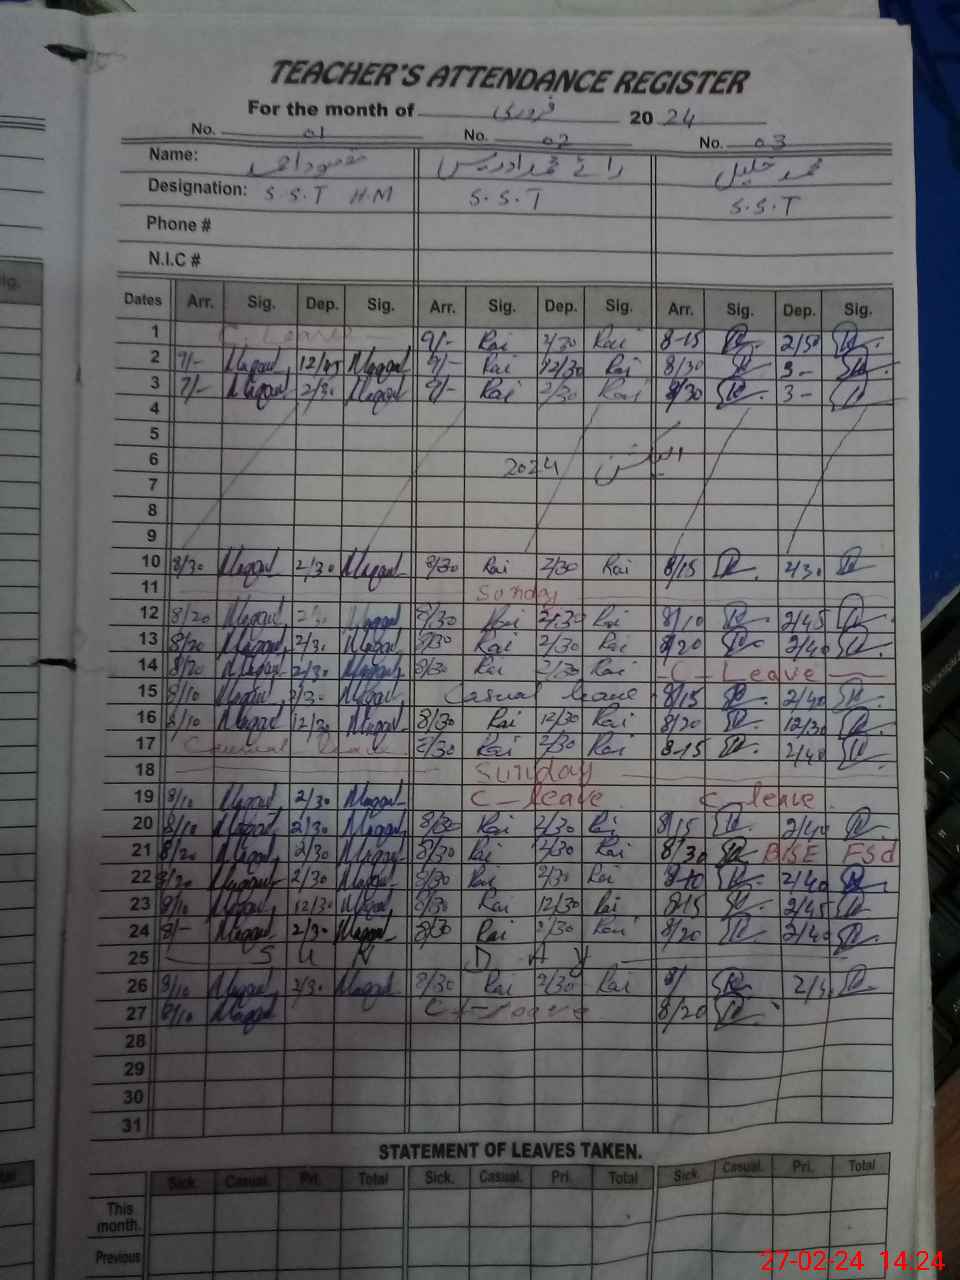 TEACHER'S ATTENDANCE REGISTER
For the month of فروری 20 24
No. 01 No. 02 No. 03
Name: مقصود احمد رائے محمد ادریس محمد خلیل
Designation: S.S.T H.M S.S.T S.S.T
Phone #
N.I.C #
Dates Arr. Sig. Dep. Sig. Arr. Sig. Dep. Sig. Arr. Sig. Dep. Sig.
1 C. Leave 9/- Rai 2/30 Rai 8-15 2/50
2 9/- 12/45 9/- Rai 12/30 Rai 8/30 3-
3 9/- 2/30 9/- Rai 2/30 Rai 8/30 3-
4
5
6 2024 الیکشن
7
8
9
10 8/30 2/30 8/30 Rai 2/30 Rai 8/15 2/30
11 Sunday
12 8/20 8/30 Rai 2/30 Rai 8/10 2/45
13 8/20 2/30 8/30 Rai 2/30 Rai 8/20 2/40
14 8/20 2/30 8/30 Rai 2/30 Rai C - Leave
15 8/10 2/30 Casual leave 8/15 2/40
16 8/10 12/30 8/30 Rai 12/30 Rai 8/20 12/30
17 Casual leave 8/30 Rai 2/30 Rai 8-15 2/40
18 Sunday
19 8/10 2/30 C - leave C leave
20 8/10 2/30 8/30 Rai 2/30 Rai 8/15 2/40
21 8/20 2/30 8/30 Rai 2/30 Rai 8/30 BISE FSd
22 8/20 2/30 8/30 Rai 2/30 Rai 8-10 2/40
23 8/10 12/30 8/30 Rai 12/30 Rai 8-15 2/45
24 8/- 2/30 8/30 Rai 2/30 Rai 8/20 2/40
25 S U N D A Y
26 8/10 2/30 8/30 Rai 2/30 Rai 8/ 2/30
27 8/10 C - Leave 8/20
28
29
30
31
STATEMENT OF LEAVES TAKEN.
Sick. Casual. Pri. Total Sick. Casual. Pri. Total Sick. Casual. Pri. Total
This month.
Previous
27-02-24 14:24